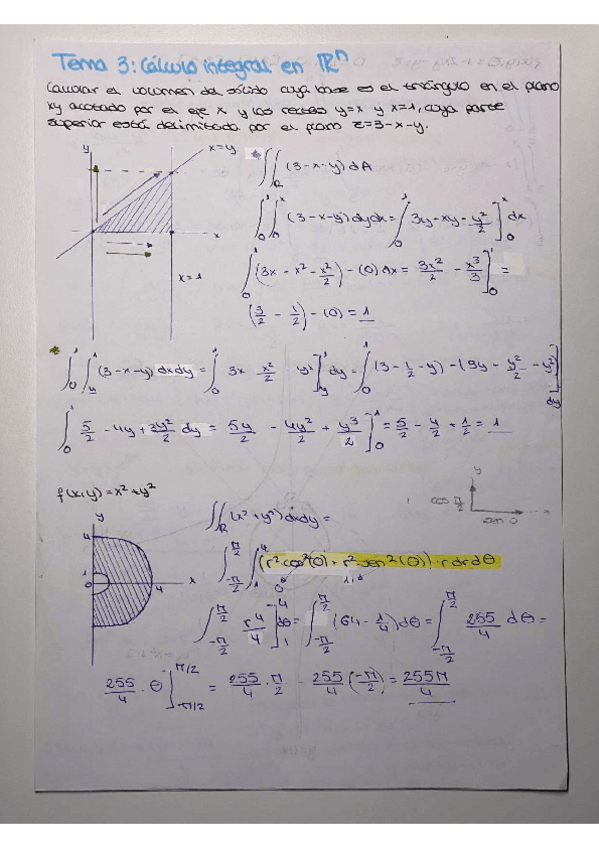 Tema 3: Cálculo integral en ℝⁿ
Calcular el volumen del sólido cuya base es el triángulo en el plano
xy acotado por el eje x y las rectas y=x y x=1, cuya parte
superior está delimitada por el plano z=3-x-y.
y
x=y
x
x=1
* ∫∫_R (3-x-y) dA
∫₀¹ ∫₀ˣ (3-x-y) dy dx = ∫₀¹ 3y - xy - y²/2 ]₀ˣ dx
∫₀¹ (3x - x² - x²/2) - (0) dx = 3x²/2 - x³/3 ]₀¹ =
(3/2 - 1/2) - (0) = 1
* ∫₀¹ ∫_y¹ (3-x-y) dx dy = ∫₀¹ 3x x²/2 yx ]_y¹ dy = ∫₀¹ (3 - 1/2 - y) - (3y - y²/2 - y²) dy
∫₀¹ 5/2 - 4y + 3y²/2 dy = 5y/2 - 4y²/2 + y³/2 ]₀¹ = 5/2 - 4/2 + 1/2 = 1
f(x,y) = x² + y²
y
4
1
0
1
4
x
y
cos π/2
sen 0
∫∫_R (x² + y²) dx dy =
∫_{-π/2}^{π/2} ∫₁⁴ (r² cos²(θ) + r² sen²(θ)) · r dr dθ
∫_{-π/2}^{π/2} r⁴/4 ]₁⁴ dθ = ∫_{-π/2}^{π/2} (64 - 1/4) dθ = ∫_{-π/2}^{π/2} 255/4 dθ =
255/4 · θ ]_{-π/2}^{π/2} = 255/4 · π/2 - 255/4 (-π/2) = 255π/4